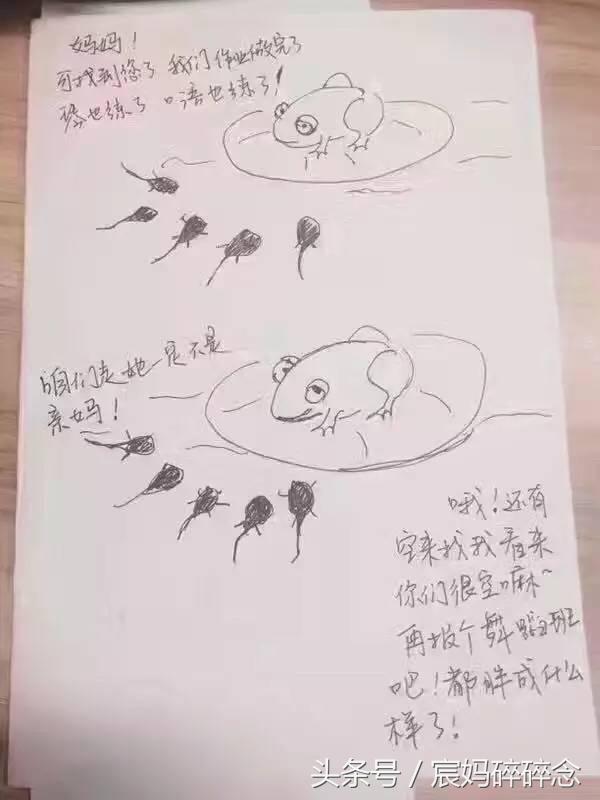 妈妈！
可找到您了 我们作业做完了
琴也练了 口语也练了！
咱们走她一定不是
亲妈！
哦！还有
空来找我看来
你们很空嘛~
再报个舞蹈班
吧！都胖成什么
样了！
头条号／宸妈碎碎念